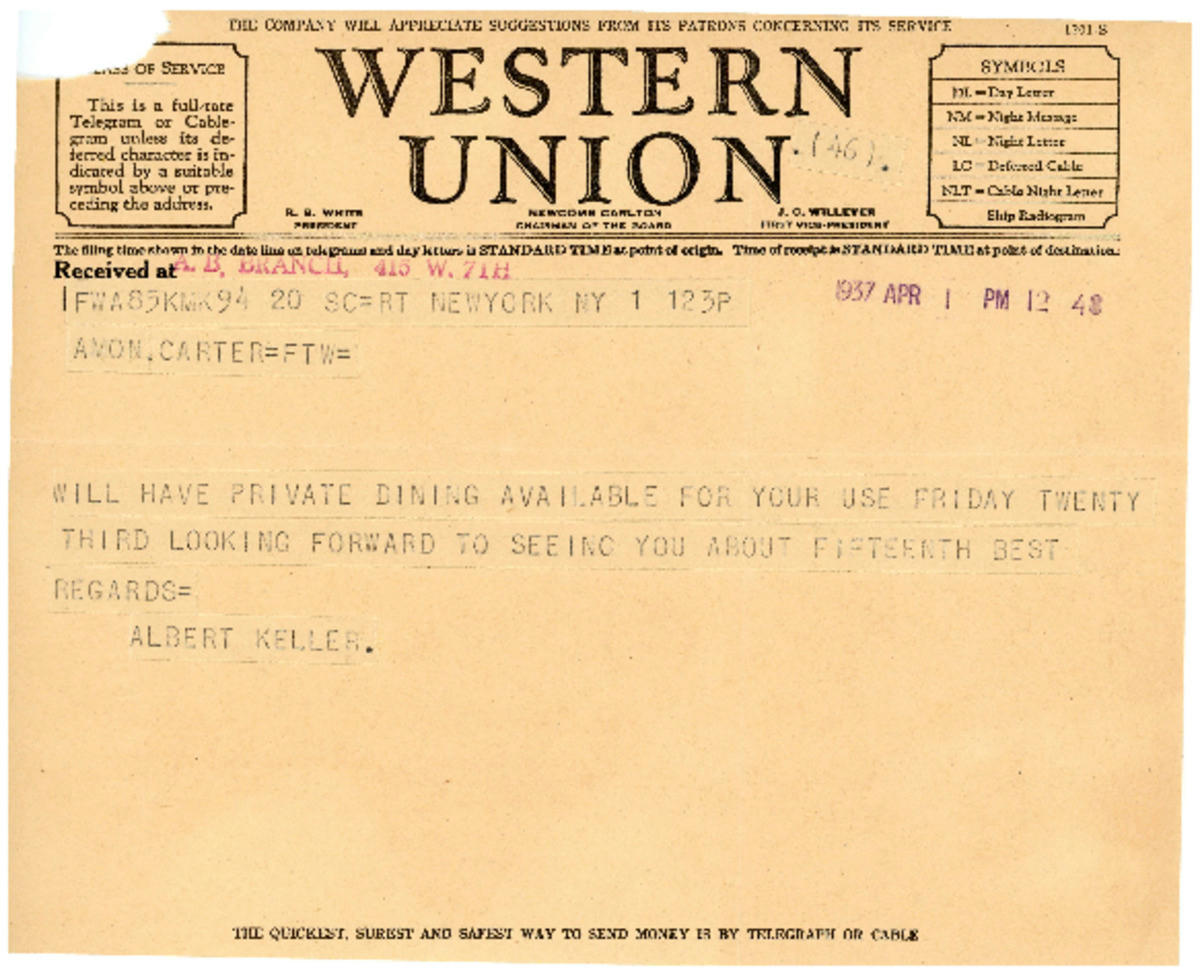 THE COMPANY WILL APPRECIATE SUGGESTIONS FROM ITS PATRONS CONCERNING ITS SERVICE
1201-S
CLASS OF SERVICE
This is a full-rate
Telegram or Cable-
gram unless its de-
ferred character is in-
dicated by a suitable
symbol above or pre-
ceding the address.
WESTERN
UNION
.(46).
R. B. WHITE
PRESIDENT
NEWCOMB CARLTON
CHAIRMAN OF THE BOARD
J. C. WILLEVER
FIRST VICE-PRESIDENT
SYMBOLS
DL = Day Letter
NM = Night Message
NL = Night Letter
LC = Deferred Cable
NLT = Cable Night Letter
Ship Radiogram
The filing time shown in the date line on telegrams and day letters is STANDARD TIME at point of origin. Time of receipt is STANDARD TIME at point of destination.
Received at A. B. BRANCH, 415 W. 7TH
FWA85KMK94 20 SC=RT NEWYORK NY 1 123P
1937 APR 1 PM 12 48
AMON.CARTER=FTW=
WILL HAVE PRIVATE DINING AVAILABLE FOR YOUR USE FRIDAY TWENTY
THIRD LOOKING FORWARD TO SEEING YOU ABOUT FIFTEENTH BEST
REGARDS=
ALBERT KELLER.
THE QUICKEST, SUREST AND SAFEST WAY TO SEND MONEY IS BY TELEGRAPH OR CABLE